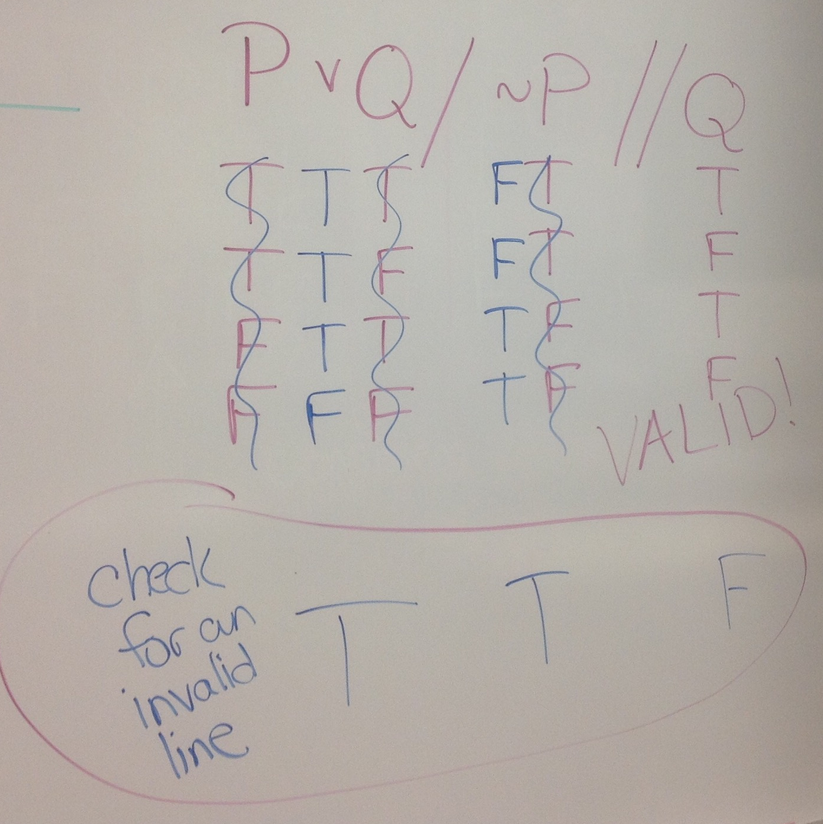 P v Q / ~P // Q
T T T FT T
T T F FT F
F T T TF T
F F F TF F
VALID!
check
for an
invalid
line
T T F